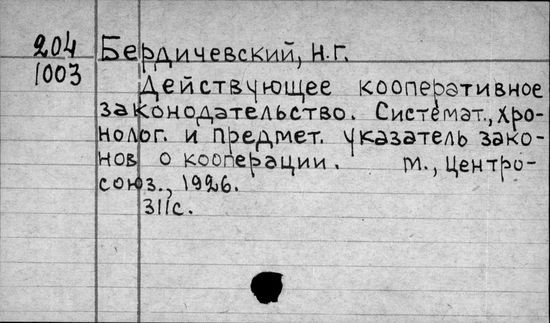 204
1003
Бердичевский, Н.Г.
Действующее кооперативное
законодательство. Системат., хро-
нолог. и предмет. указатель зако-
нов о кооперации. М., Центро-
союз., 1926.
311с.